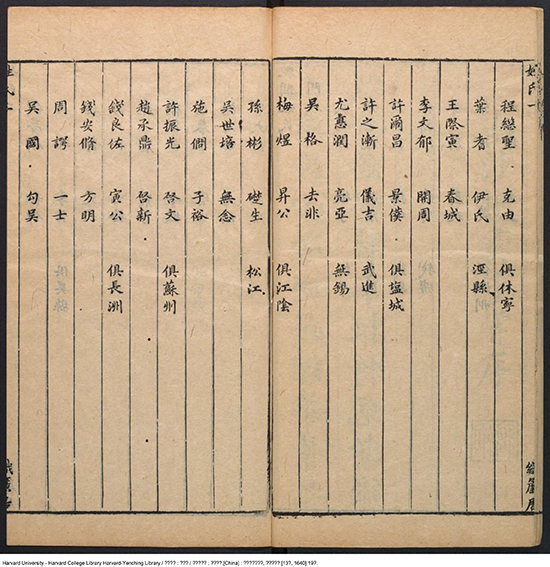 姓氏一
程繼聖 克由 俱休寧
葉耆 伊氏 涇縣
王際寅 春城
李文郁 開周
許爾昌 景僕 俱塩城
許之漸 儀吉 武進
尤惪潤 亮亞 無錫
吳格 去非
梅煜 昇公 俱江陰
孫彬 礎生 松江
吳世培 無念
施侗 子裕
許振光 啓文 俱蘇州
趙承鼎 啓新
錢良佐 寅公 俱長洲
錢安脩 方明
周諤 一士
吳圖 勾吳
Harvard University - Harvard College Library Harvard-Yenching Library / ???? : ??? / ????? : ???? [China] : ???????, ????? [13?, 1640] 19?.